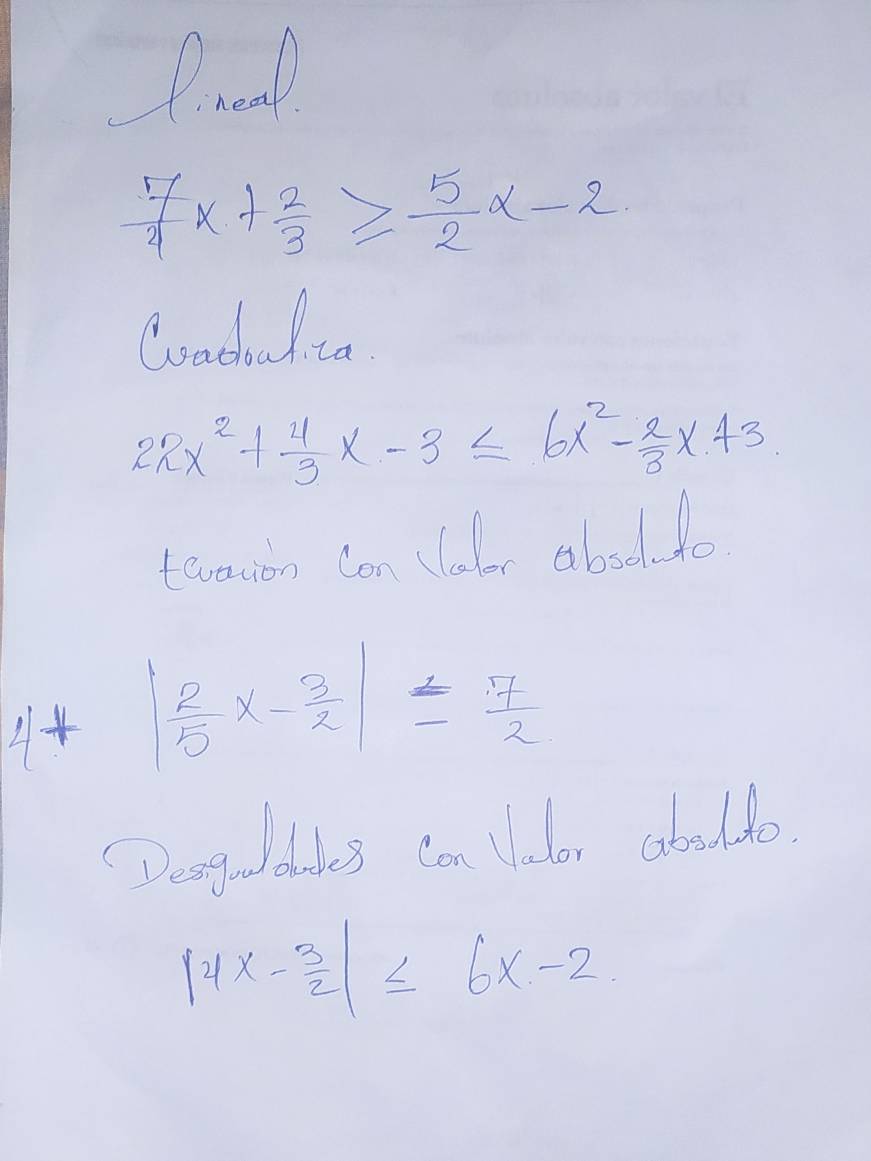 lineal.
7/2 x + 2/3 ≥ 5/2 x - 2.
Cuadratica.
22x² + 4/3 x - 3 ≤ 6x² - 2/3 x + 3.
Ecuación con Valor absoluto.
| 2/5 x - 3/2 | = 7/2
Desigualdades con Valor absoluto.
|4x - 3/2| ≤ 6x - 2.